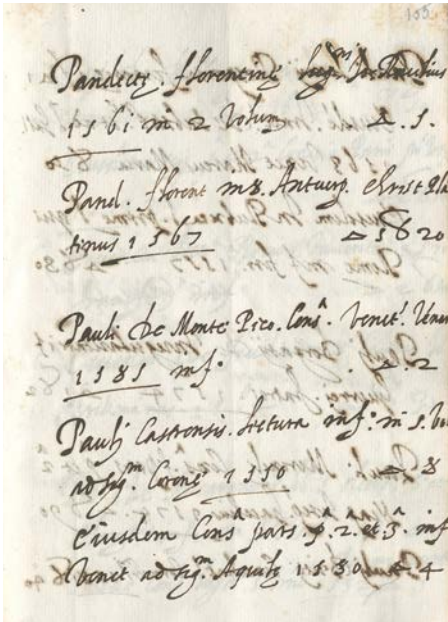 155
Pandectę. florentinę
1561 in 2 Volum. 5.
Pand. florent in 8. Antuerp. Christ Pla
tinus 1567 20
Pauli de Monte Pico. Consᵃ. Venetˢ. Venet
1585 in fᵒ. 2
Pauli Castrensis. lectura in fᵒ. in 5. Vo
ad sigᵐ. Coronę 1550 8
Eiusdem Consᵃ pars. pᵃ. 2. et 3ᵃ. in f
Venet ad sigᵐ. Aquilę 1580 4